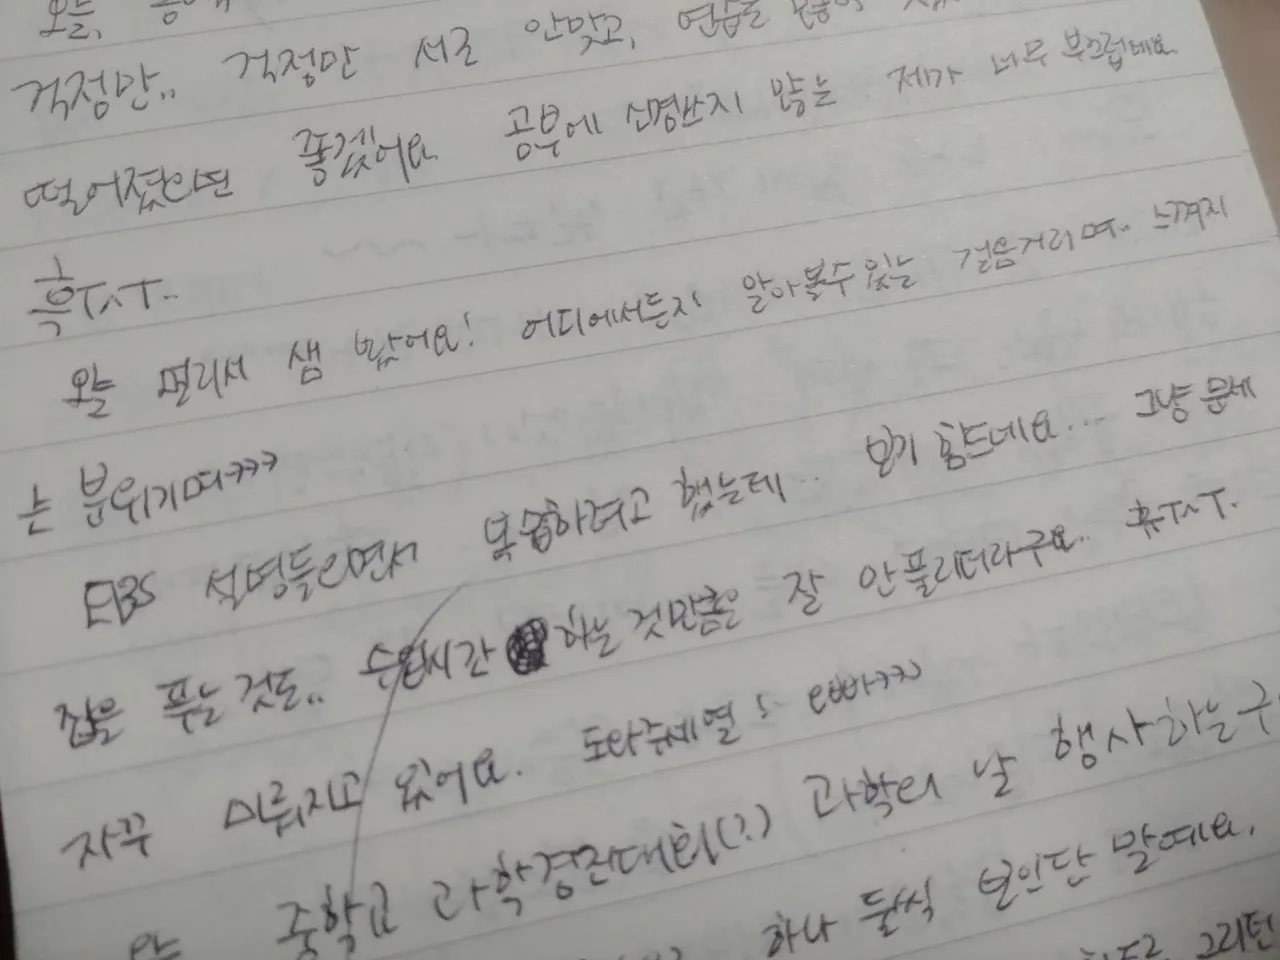 오늘,
걱정만.. 걱정만 서로 안맞고, 연습을
떨어졌으면 좋겠어요. 공부에 신경쓰지 않는 제가 너무 부끄럽네요.
흑ㅜㅅㅜ..
오늘 멀리서 샘 봤어요! 어디에서든지 알아볼수있는 걸음거리며.. 느껴지
는 분위기며ㅋㅋㅋ
EBS 설명들으면서 복습하려고 했는데.. 보기 힘드네요... 그냥 문제
집을 푸는것도.. 수업시간 하는것만큼은 잘 안풀리더라구요.. 휴ㅜㅅㅜ.
자꾸 미뤄지고 있어요. 도와주세열
중학교 과학경진대회(?) 과학의 날 행사하는구
하나 둘씩 보인단 말예요.